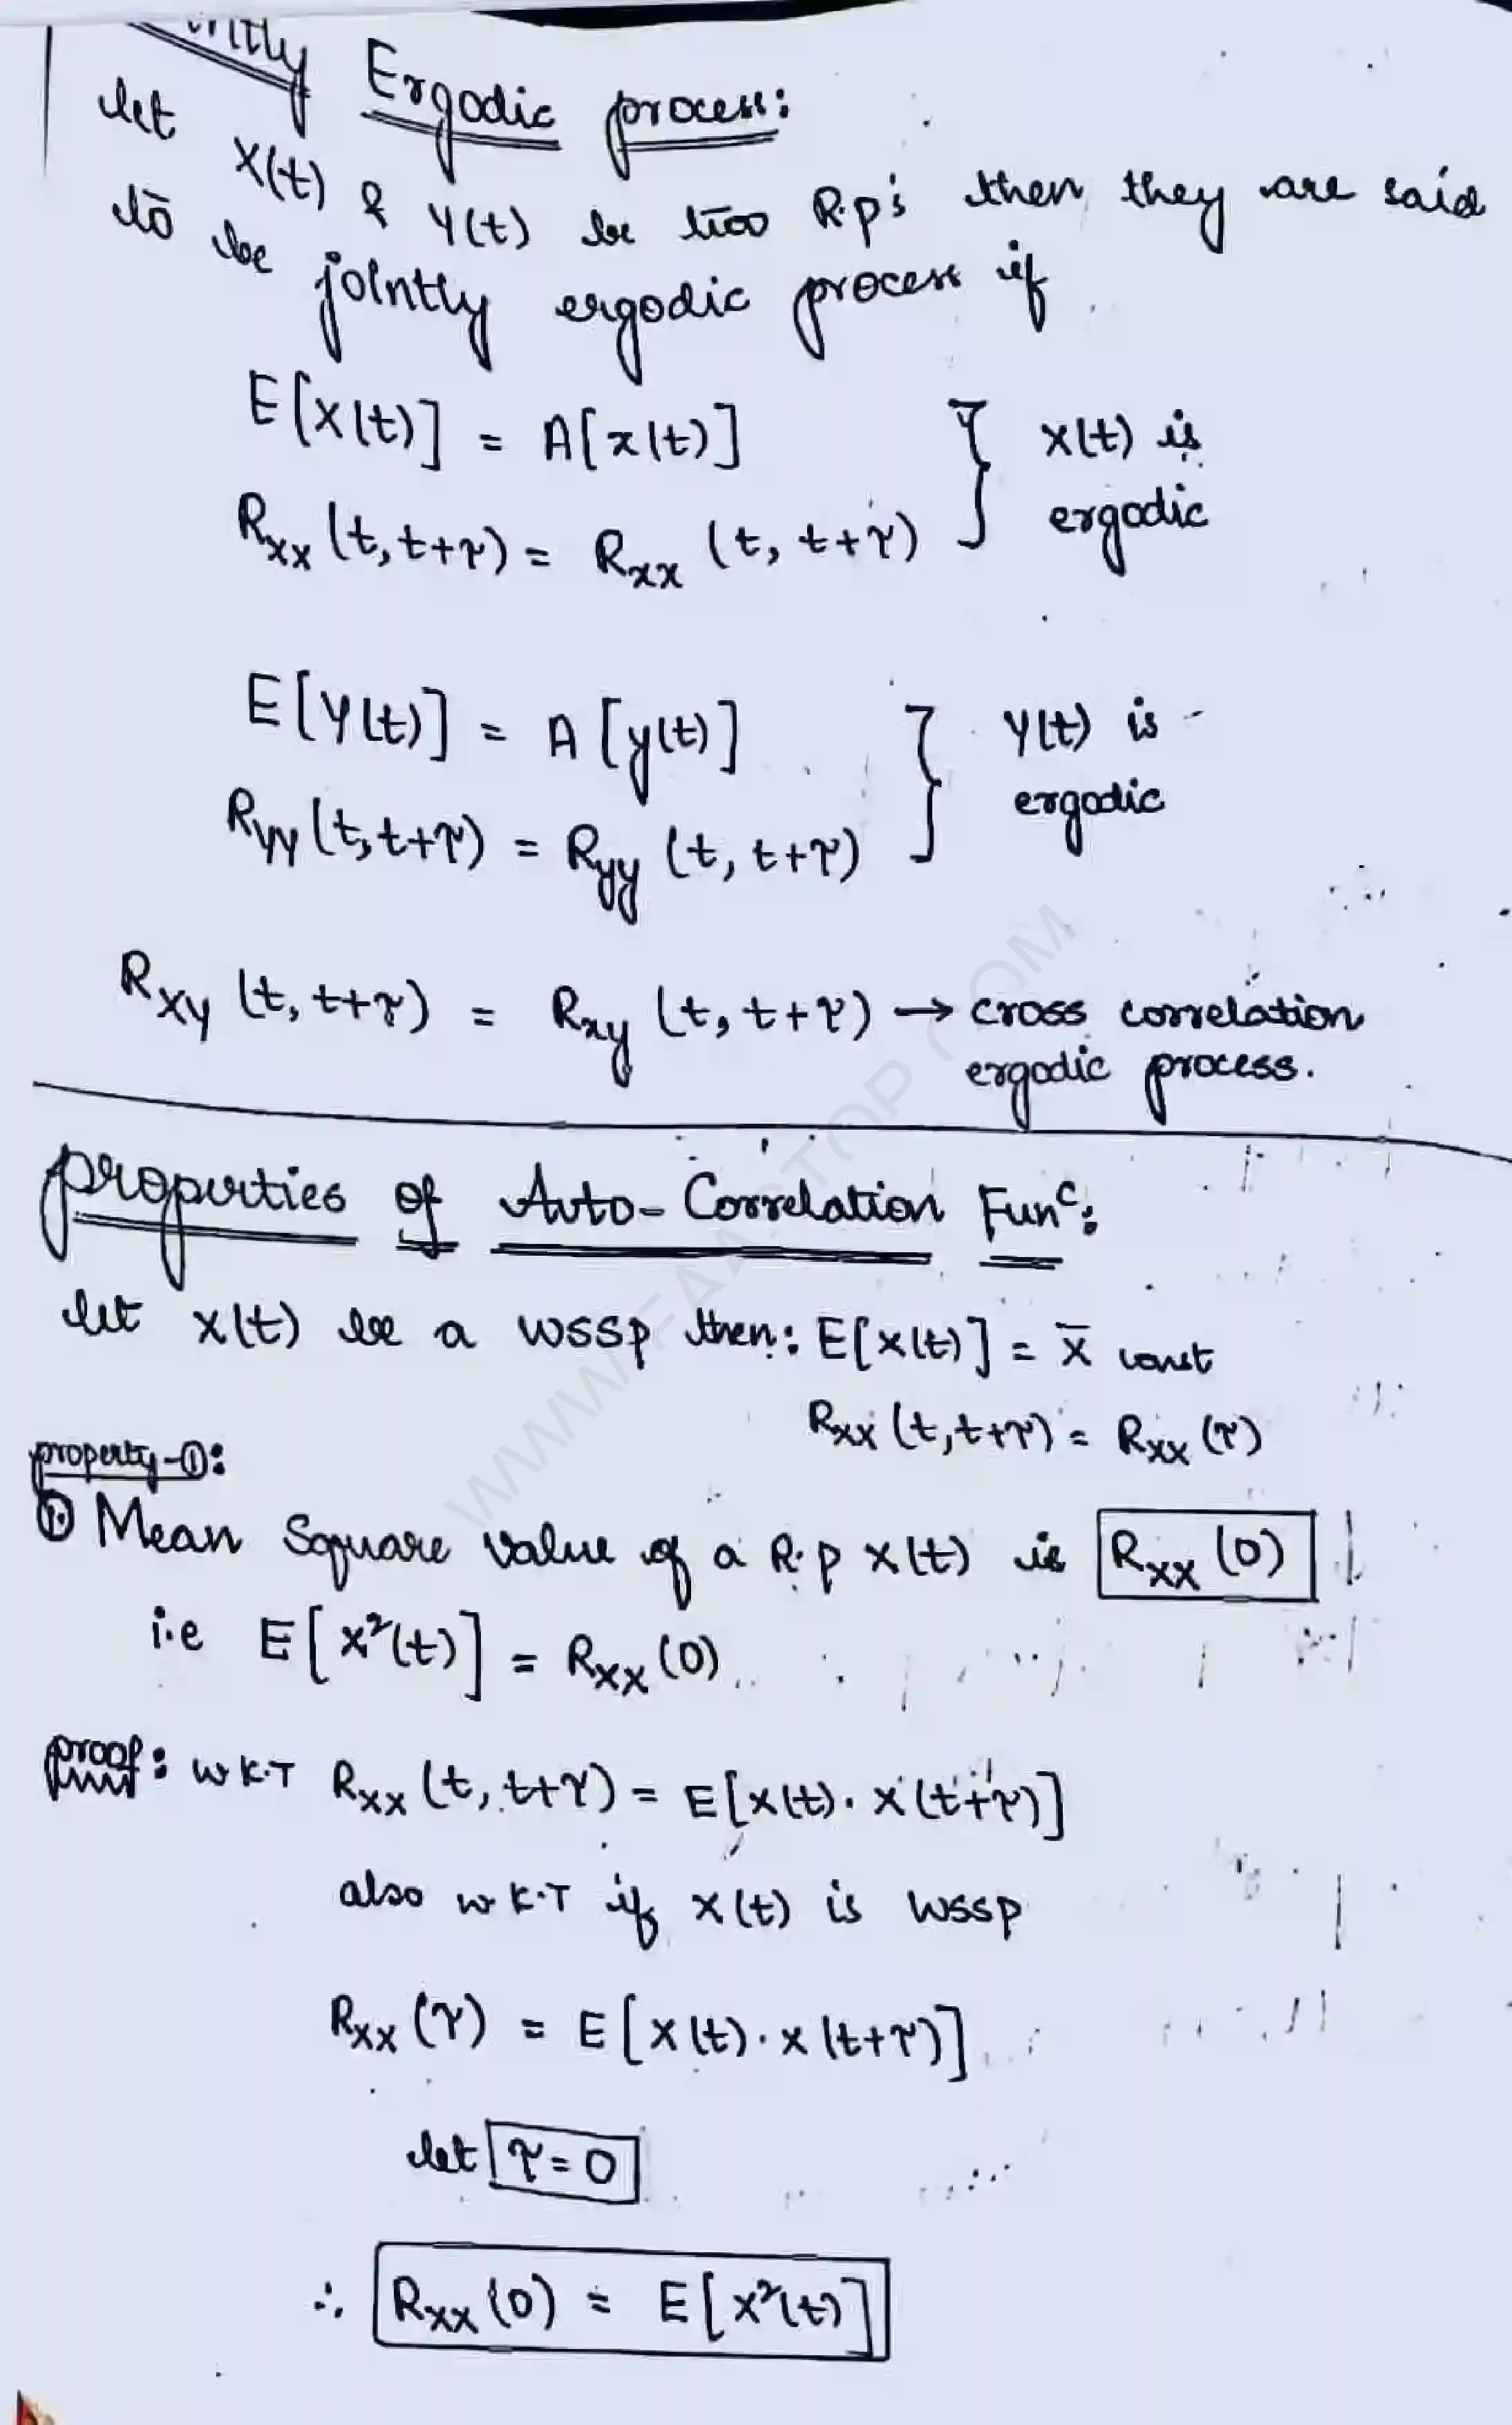 Ergodic process:
let X(t) & Y(t) be two R.p's then they are said
to be jointly ergodic process if
E[X(t)] = A[x(t)] } X(t) is
Rxx (t, t+τ) = Rxx (t, t+τ) ergodic
E[Y(t)] = A[y(t)] } Y(t) is
Ryy (t, t+τ) = Ryy (t, t+τ) ergodic
Rxy (t, t+τ) = Rxy (t, t+τ) → cross correlation
ergodic process.
properties of Auto-Correlation Funᶜ:
let X(t) be a WSSP then: E[X(t)] = X̄ const
Rxx (t, t+τ) = Rxx (τ)
property-①:
① Mean Square Value of a R.p X(t) is Rxx (0)
i.e E[X²(t)] = Rxx (0)
proof: W K.T Rxx (t, t+τ) = E[X(t). X(t+τ)]
also W K.T if X(t) is WSSP
Rxx (τ) = E[X(t). X(t+τ)]
let τ = 0
∴ Rxx (0) = E[X²(t)]